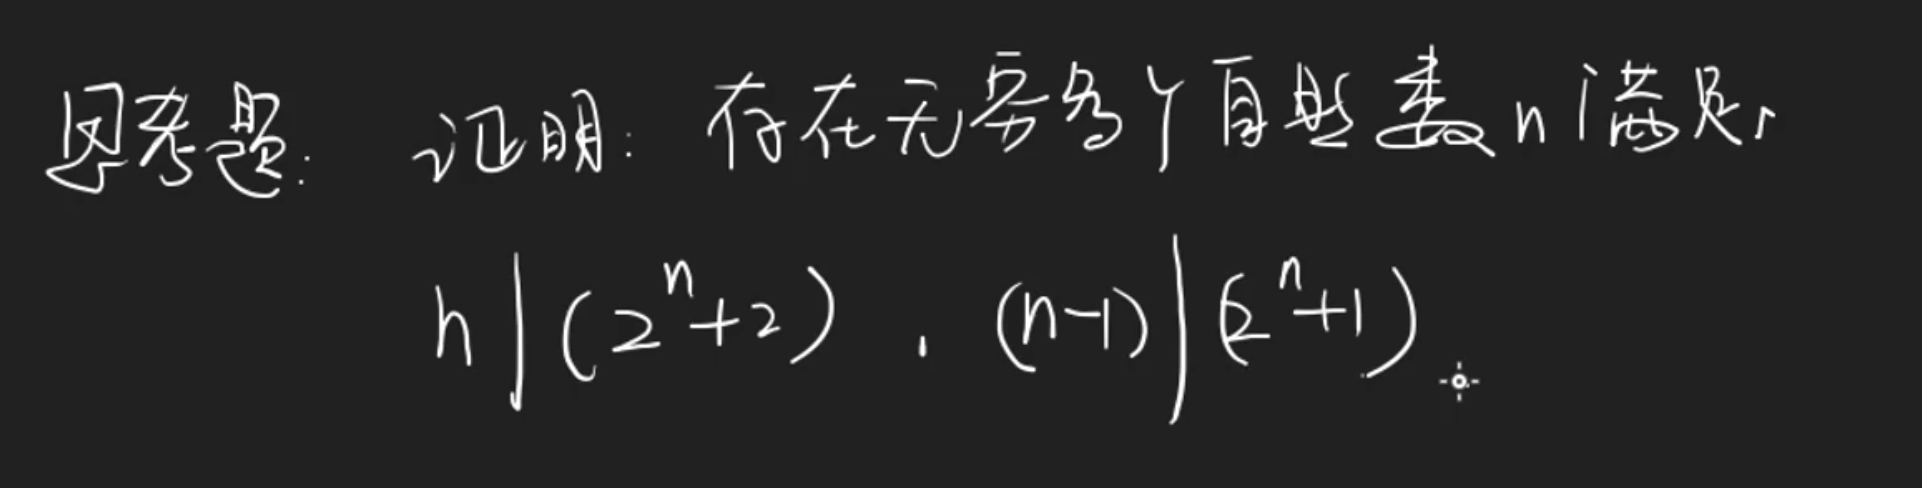 思考题: 证明: 存在无穷多个自然数n满足,
n|(2ⁿ+2), (n-1)|(2ⁿ+1)